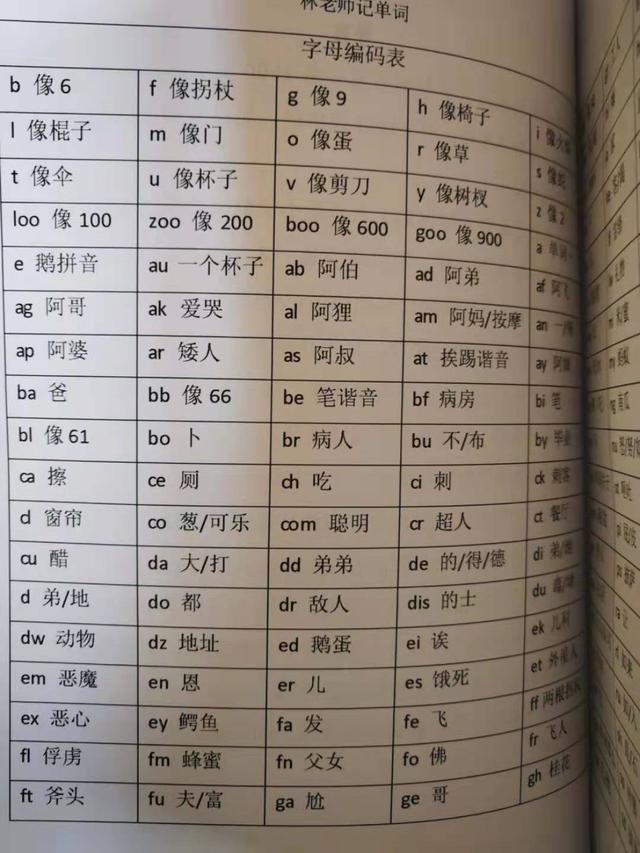 林老师记单词
字母编码表
b 像 6 f 像拐杖 g 像 9 h 像椅子 i 像火
l 像棍子 m 像门 o 像蛋 r 像草 s 像蛇
t 像伞 u 像杯子 v 像剪刀 y 像树杈 z 像 2
loo 像 100 zoo 像 200 boo 像 600 goo 像 900 a 单词一
e 鹅拼音 au 一个杯子 ab 阿伯 ad 阿弟 af 阿飞
ag 阿哥 ak 爱哭 al 阿狸 am 阿妈/按摩 an 一/
ap 阿婆 ar 矮人 as 阿叔 at 挨踢谐音 ay 阿姨
ba 爸 bb 像 66 be 笔谐音 bf 病房 bi 笔
bl 像 61 bo 卜 br 病人 bu 不/布 by 毕业
ca 擦 ce 厕 ch 吃 ci 刺 ck 刺客
cl 窗帘 co 葱/可乐 com 聪明 cr 超人 ct 餐厅
cu 醋 da 大/打 dd 弟弟 de 的/得/德 di 弟/
d 弟/地 do 都 dr 敌人 dis 的士 du 毒/
dw 动物 dz 地址 ed 鹅蛋 ei 诶 ek 儿科
em 恶魔 en 恩 er 儿 es 饿死 et 外星人
ex 恶心 ey 鳄鱼 fa 发 fe 飞 ff 两根拐杖
fl 俘虏 fm 蜂蜜 fn 父女 fo 佛 fr 飞人
ft 斧头 fu 夫/富 ga 尬 ge 哥 gh 桂花